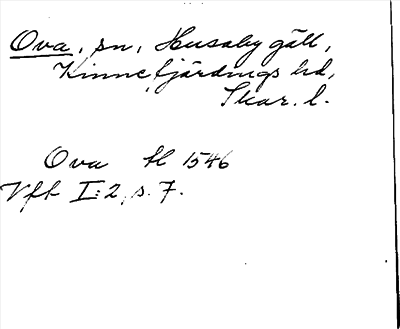 Ova, sn, Husaby gäll,
Kinnefjärdings hd,
Skar. l.
Ova hl 1546
Vfk I:2, s. 7.